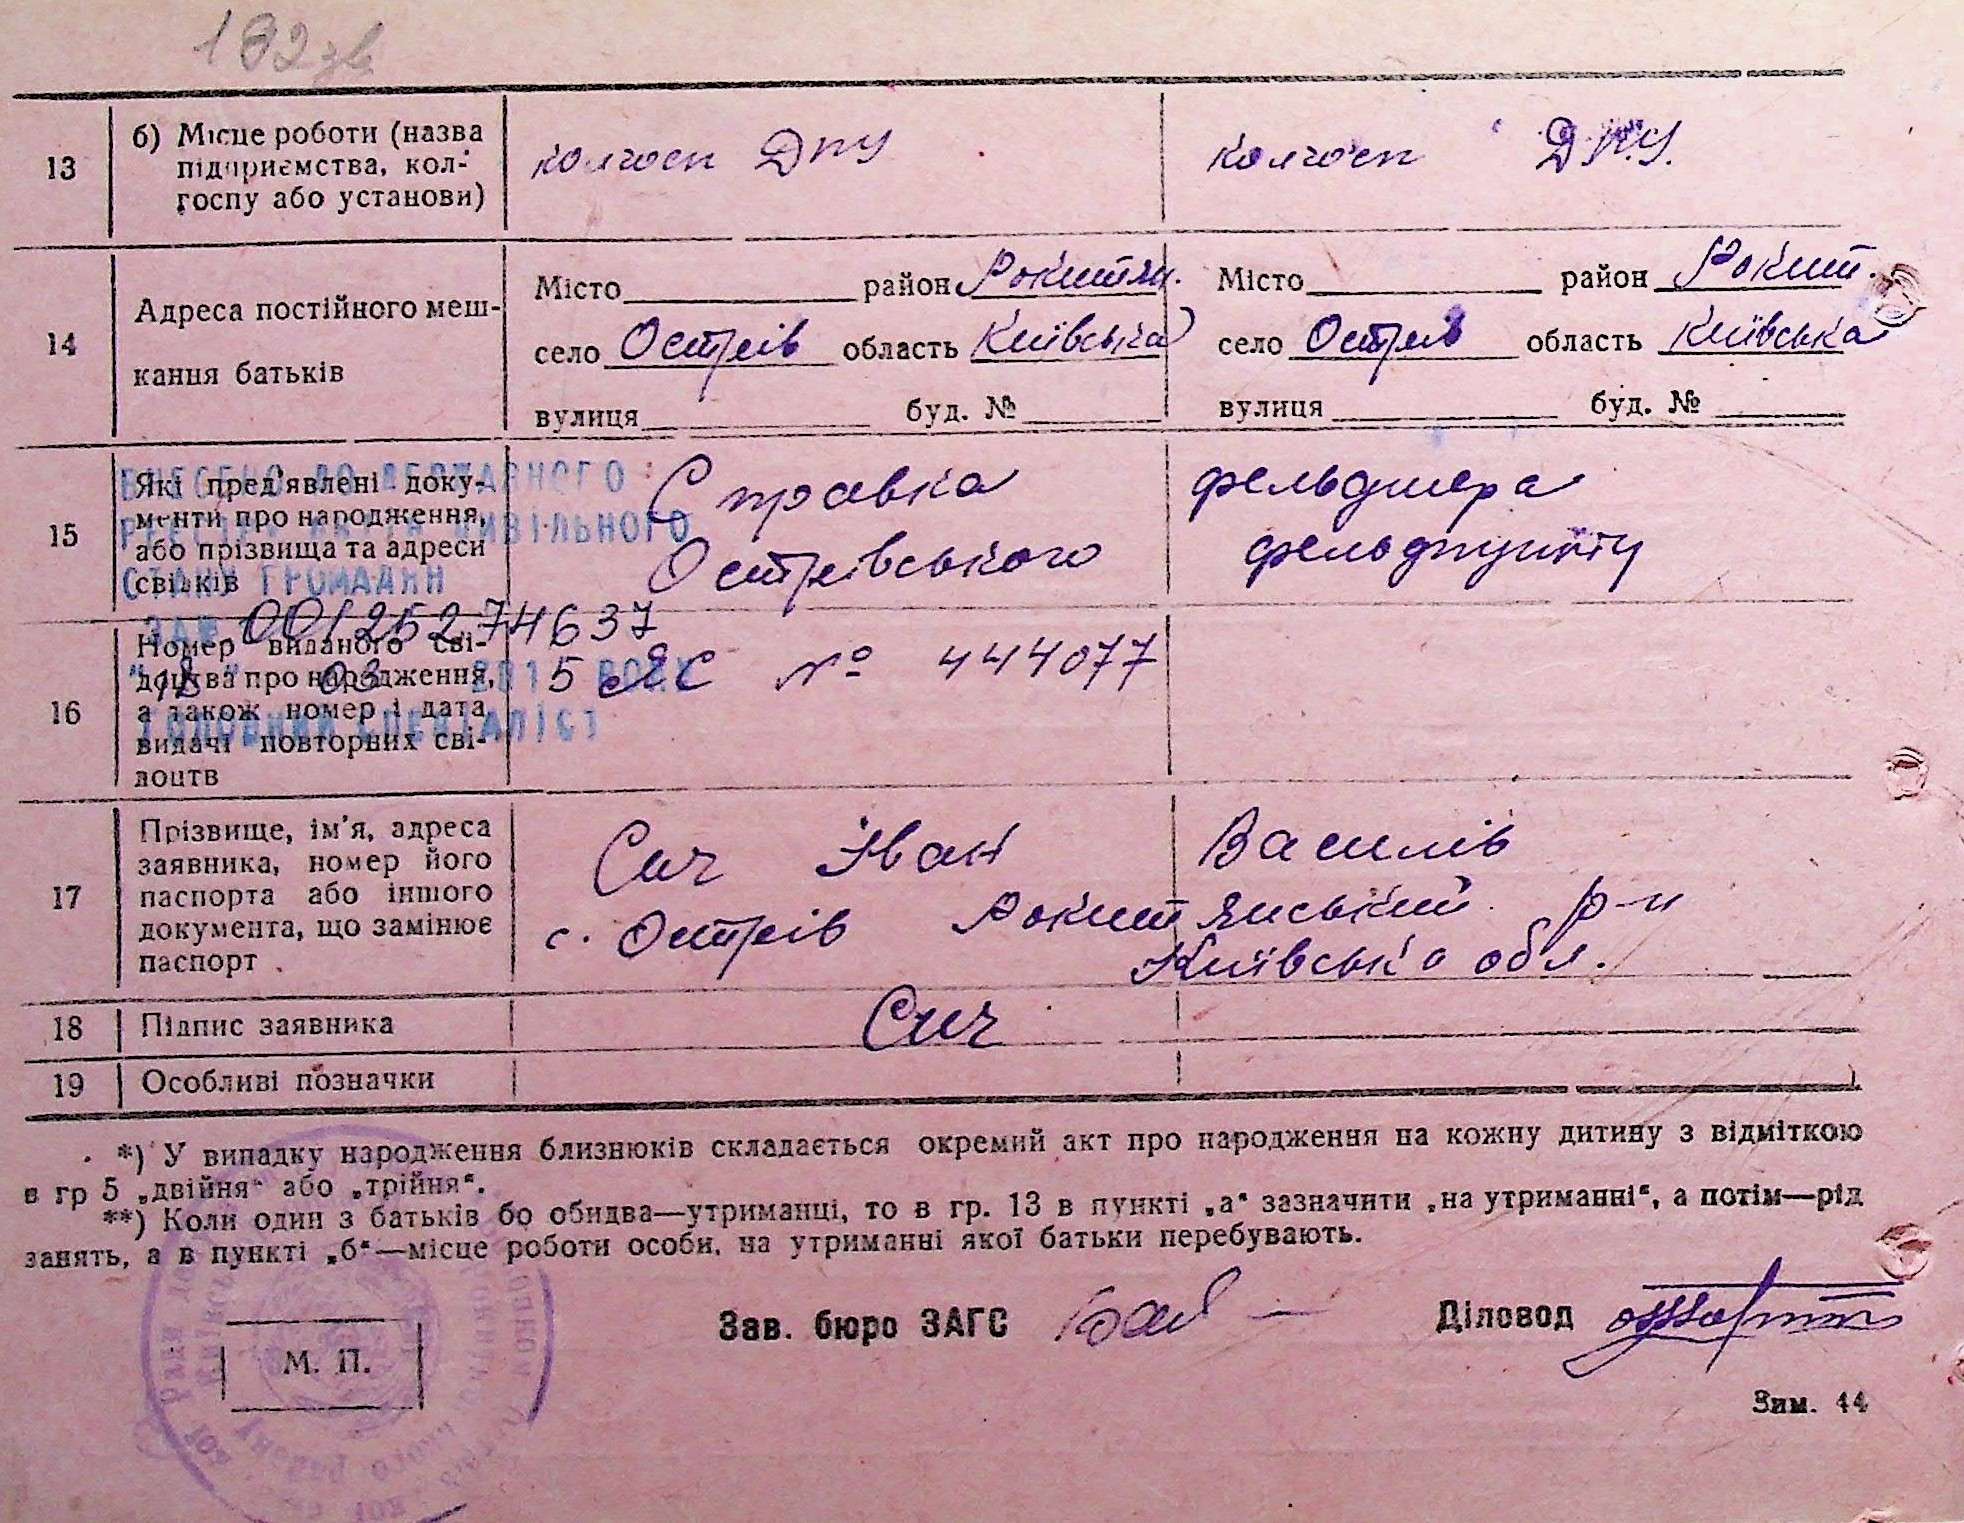 132 зв
13 б) Місце роботи (назва підприємства, колгоспу або установи) колгосп ДПУ колгосп Д.П.У.
14 Адреса постійного мешкання батьків
Місто район Рокитян. Місто район Рокит.
село Острів область Київська село Острів область Київська
вулиця буд. № вулиця буд. №
15 Які пред'явлені документи про народження, або прізвища та адреси свідків
Справка фельдшера
Острівського фельдпункту
ВНЕСЕНО ДО ДЕРЖАВНОГО
РЕЄСТРУ АКТІВ ЦИВІЛЬНОГО
СТАНУ ГРОМАДЯН
ЗА № 00125274637
"18" 03 201 РОКУ
ГОЛОВНИЙ СПЕЦІАЛІСТ
16 Номер виданого свідоцтва про народження, а також номер і дата видачі повторних свідоцтв
ЯС № 444077
17 Прізвище, ім'я, адреса заявника, номер його паспорта або іншого документа, що замінює паспорт
Сич Іван Василів
с. Острів Рокитянський р-н
Київська обл.
18 Підпис заявника Сич
19 Особливі позначки
*) У випадку народження близнюків складається окремий акт про народження на кожну дитину з відміткою
в гр 5 „двійня“ або „трійня“.
**) Коли один з батьків бо обидва—утриманці, то в гр. 13 в пункті „а“ зазначити „на утриманні“, а потім—рід
занять, а в пункті „б“—місце роботи особи, на утриманні якої батьки перебувають.
Зав. бюро ЗАГС Діловод
М. П.
Зим. 44